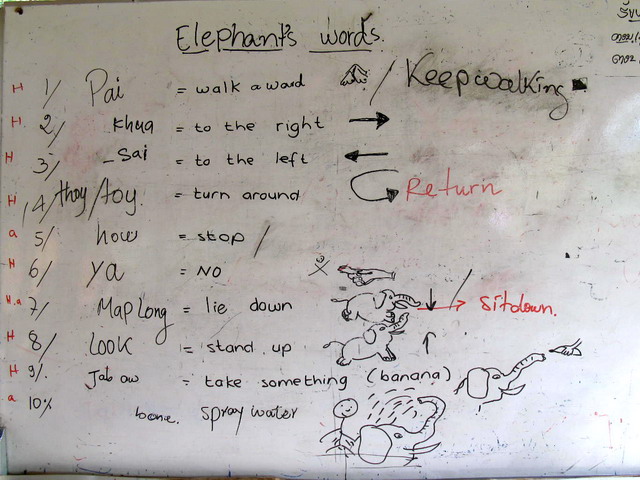 Elephant's words.
H 1/ Pai = walk a ward / Keep walking
H 2/ Khua = to the right
H 3/ Sai = to the left
H 4/ thoy/toy. = turn around Return
a 5/ how = stop /
H 6/ ya = NO
H.a 7/ Map Long = lie down / Sitdown.
H 8/ LOOK = stand up
H 9/. Jab ow = take something (banana)
a 10/. spray water